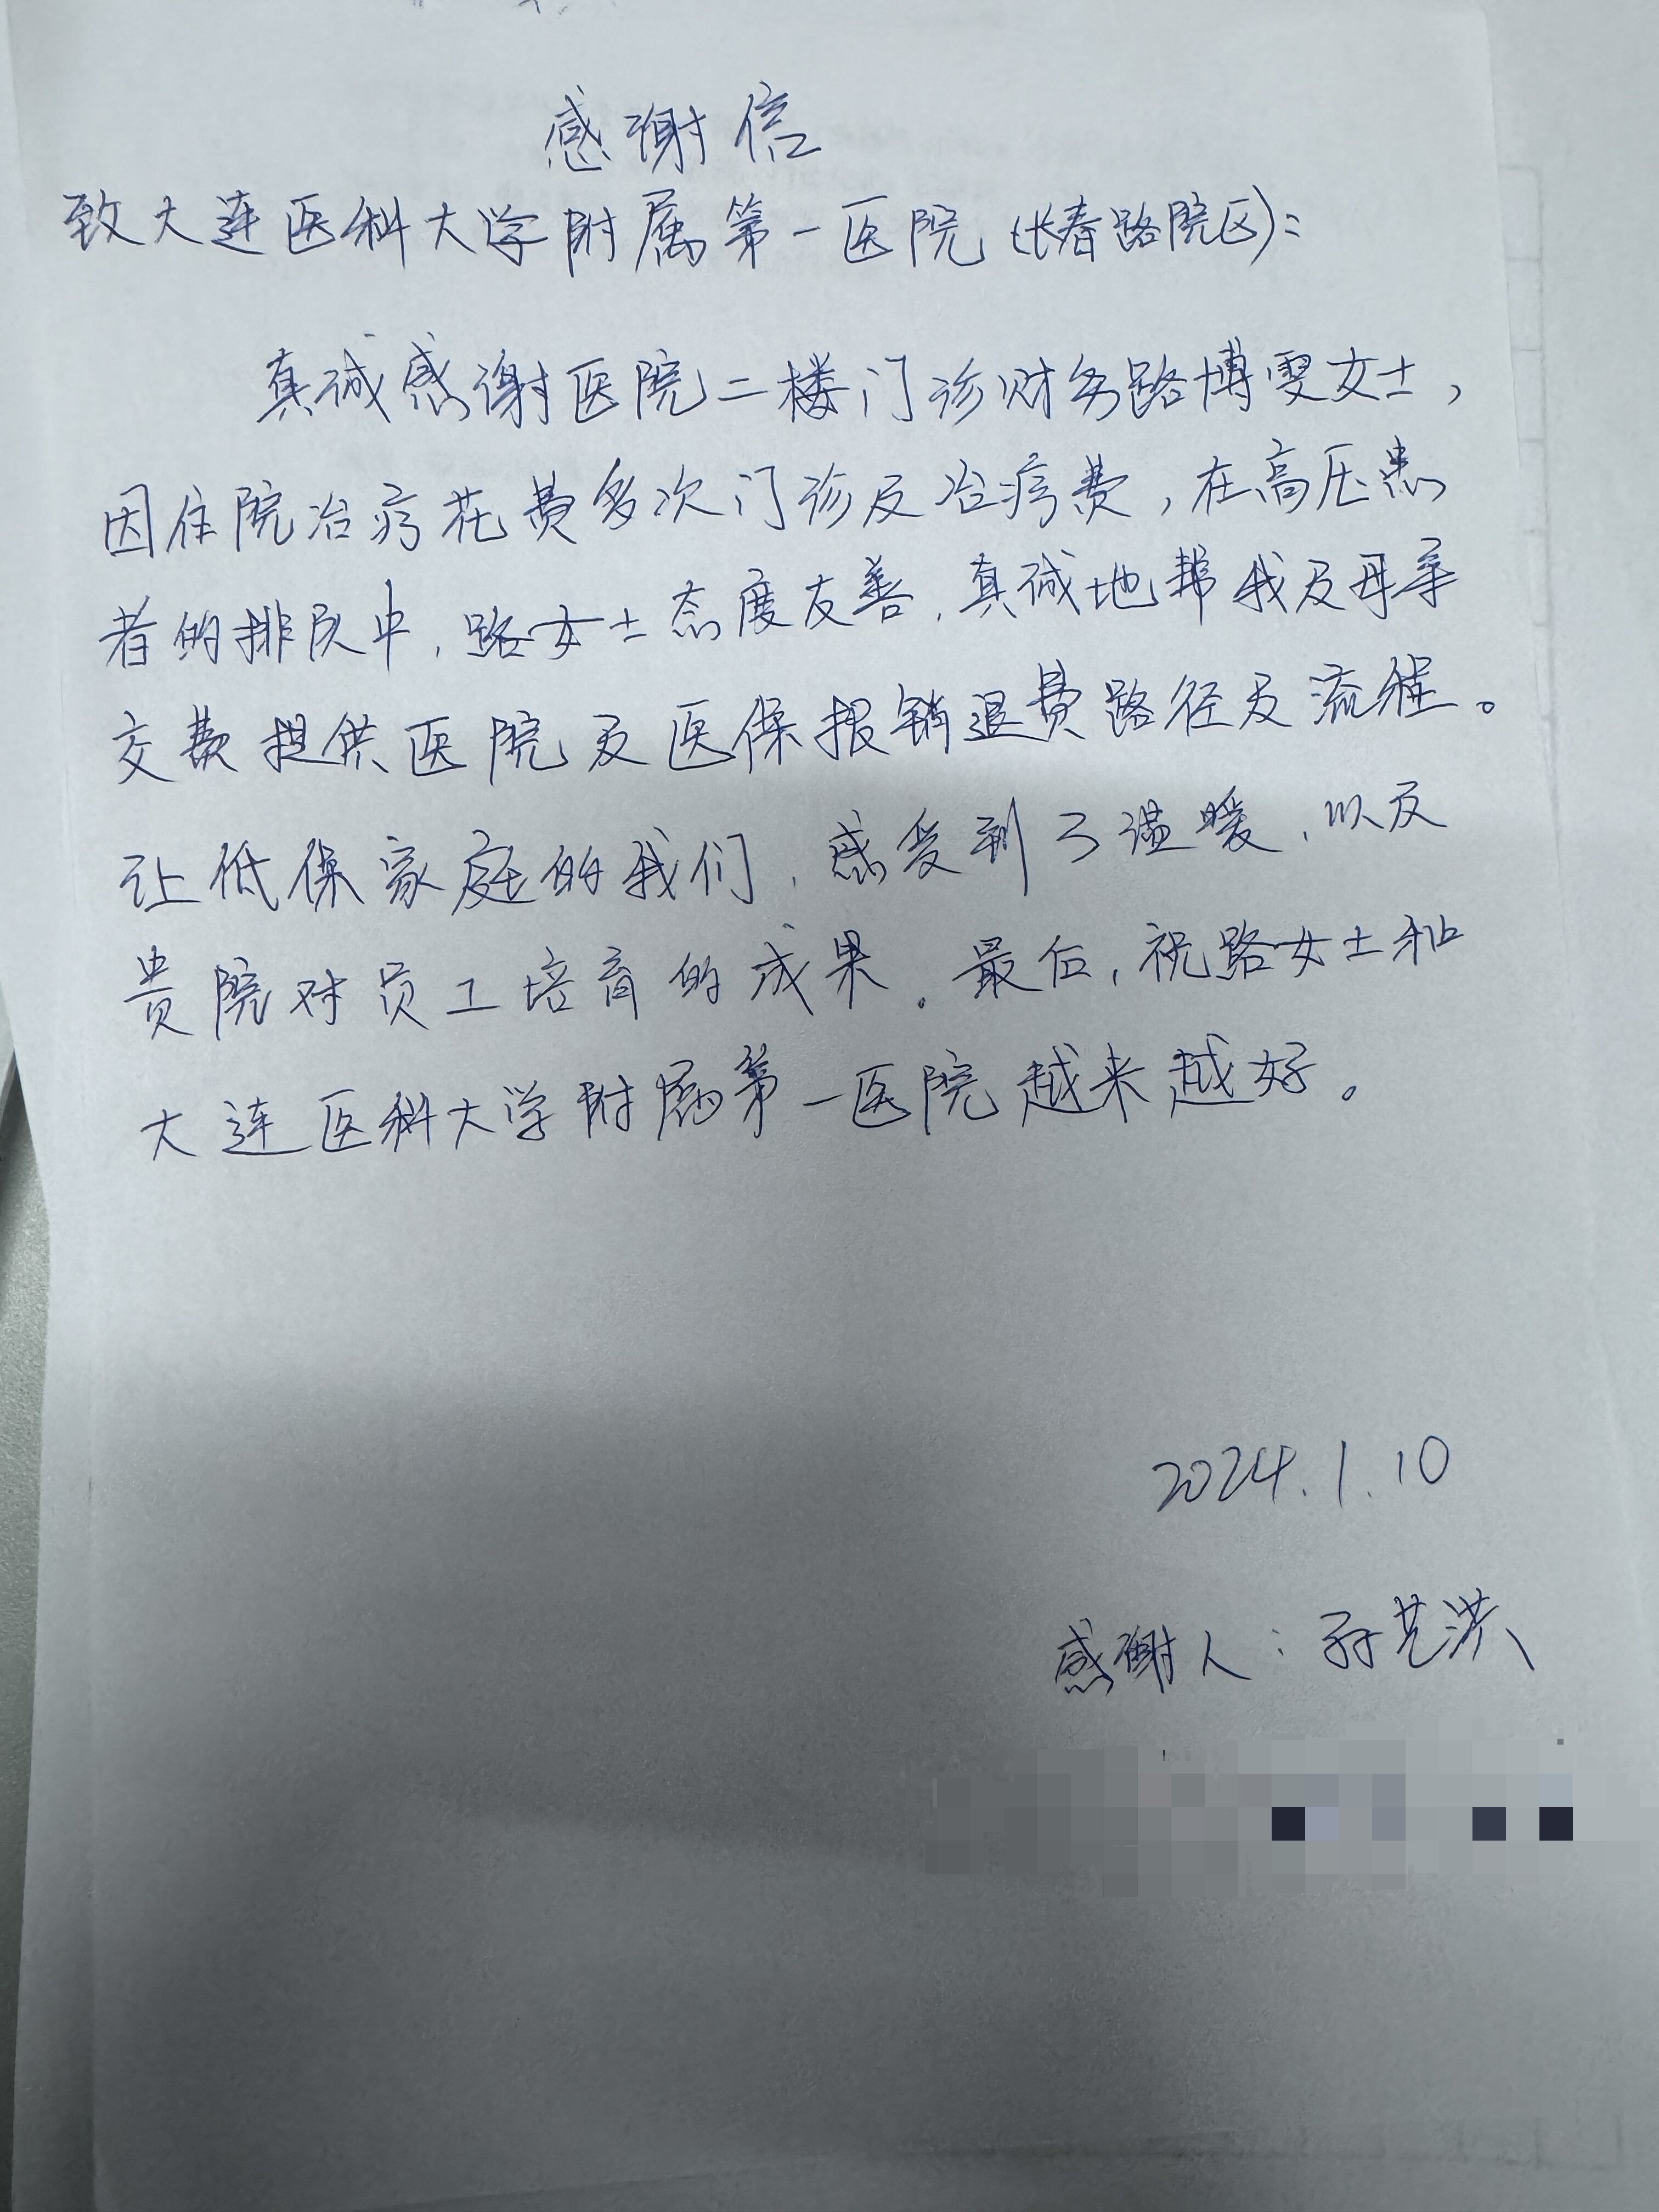 感谢信
致大连医科大学附属第一医院（长春路院区）：
真诚感谢医院二楼门诊财务路博雯女士，
因住院治疗花费多次门诊及治疗费，在高压患
者的排队中，路女士态度友善，真诚地帮我及母亲
交费提供医院及医保报销退费路径及流程。
让低保家庭的我们，感受到了温暖，以及
贵院对员工培育的成果。最后，祝路女士和
大连医科大学附属第一医院越来越好。
2024.1.10
感谢人：孙艺洪